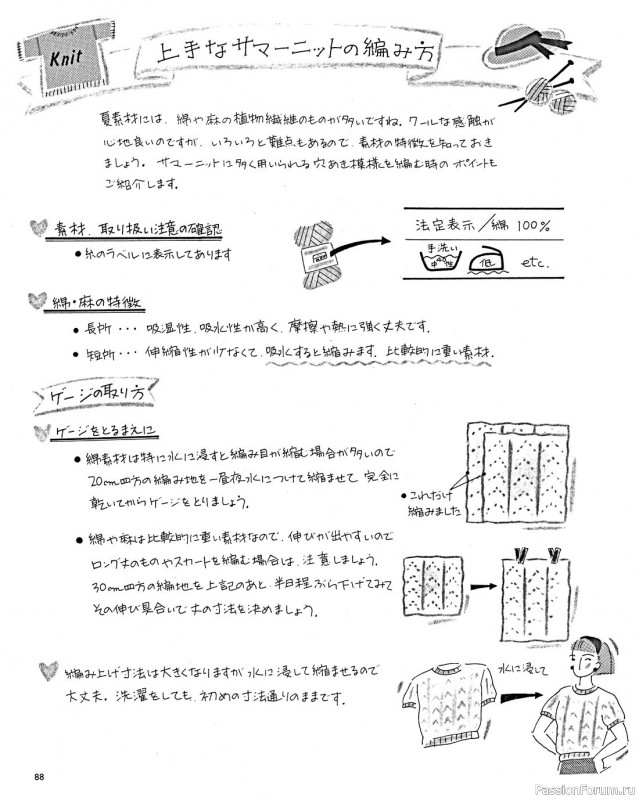 Knit
上手なサマーニットの編み方
夏素材には、綿や麻の植物繊維のものが多いですね。クールな感触が
心地良いのですが、いろいろと難点もあるので、素材の特徴を知っておき
ましょう。サマーニットに多く用いられる穴あき模様を編む時のポイントも
ご紹介します。
素材、取り扱い注意の確認
●糸のラベルに表示してあります
法定表示/綿 100%
手洗い
40
中性
低
etc.
綿・麻の特徴
●長所・・・吸湿性、吸水性が高く、摩擦や熱に強く丈夫です。
●短所・・・伸縮性が少なくて、吸水すると縮みます。比較的に重い素材。
ゲージの取り方
ゲージをとるまえに
●綿素材は特に水に浸すと編み目が縮む場合が多いので
20cm四方の編み地を一昼夜水につけて縮ませて、完全に
乾いてからゲージをとりましょう。
●これだけ
縮みました
●綿や麻は比較的に重い素材なので、伸びが出やすいので
ロング丈のものやスカートを編む場合は、注意しましょう。
30cm四方の編地を上記のあと、半日程ぶら下げてみて
その伸び具合いで丈の寸法を決めましょう。
編み上げ寸法は大きくなりますが水に浸して縮ませるので
大丈夫。洗濯をしても、初めの寸法通りのままです。
水に浸して
88
PassionForum.ru